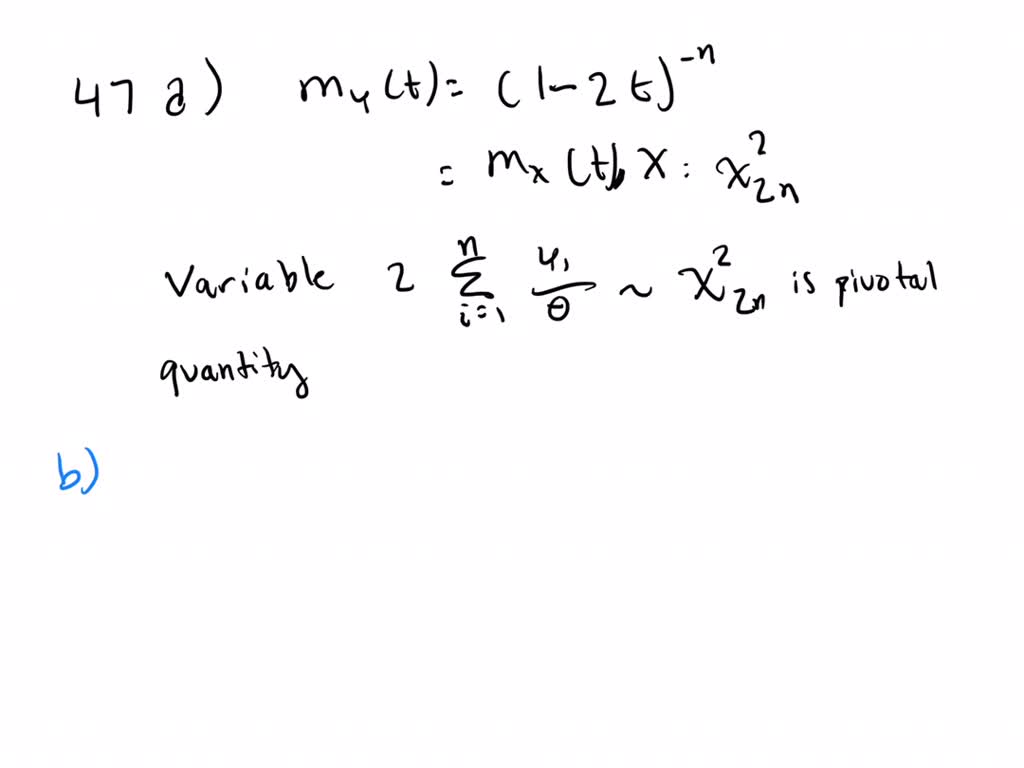 47 a) m_Y(t) = (1-2t)^{-n}
= m_x(t), X: χ²_{2n}
Variable 2 Σ_{i=1}^{n} Y_i/θ ~ χ²_{2n} is pivotal
quantity
b)